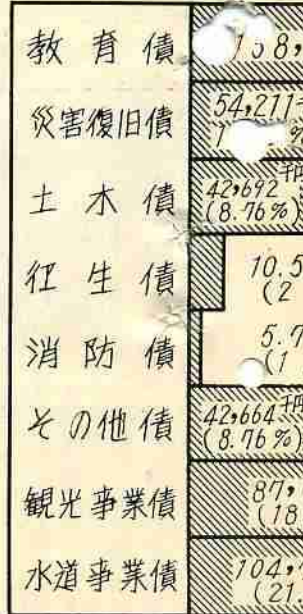 教育債
158,
災害復旧債
54,211
土木債
42,692千円
(8.76%)
衛生債
10.5
(2
消防債
5.7
(1
その他債
42,664千円
(8.76%)
観光事業債
87,
(18.
水道事業債
104,
(21.